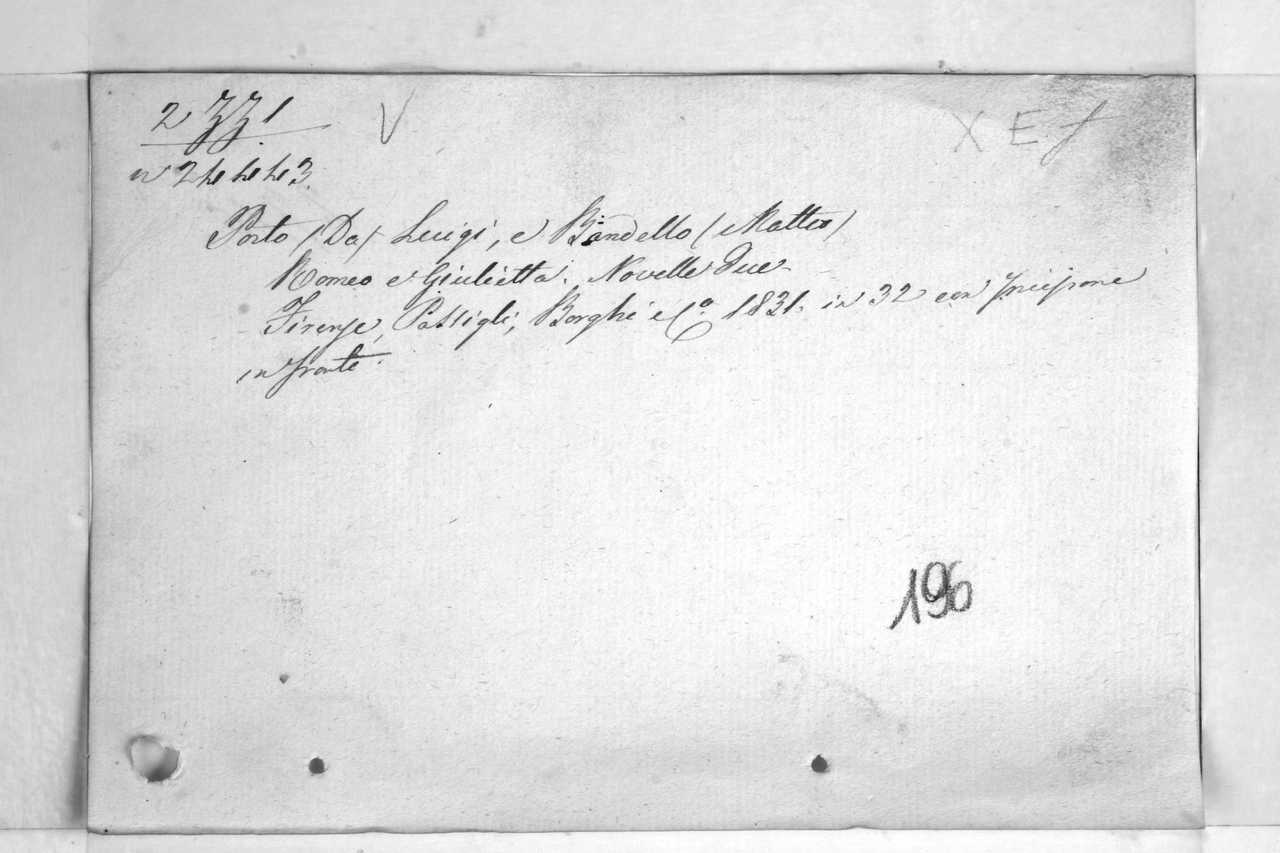 2 ZZ 1 V X E f
n 24443.
Porto (Da) Luigi, e Bandello (Matteo)
Romeo e Giulietta. Novelle due.
Firenze, Passigli, Borghi e C.º 1831. in 32 con Incisione
in fronte.
196